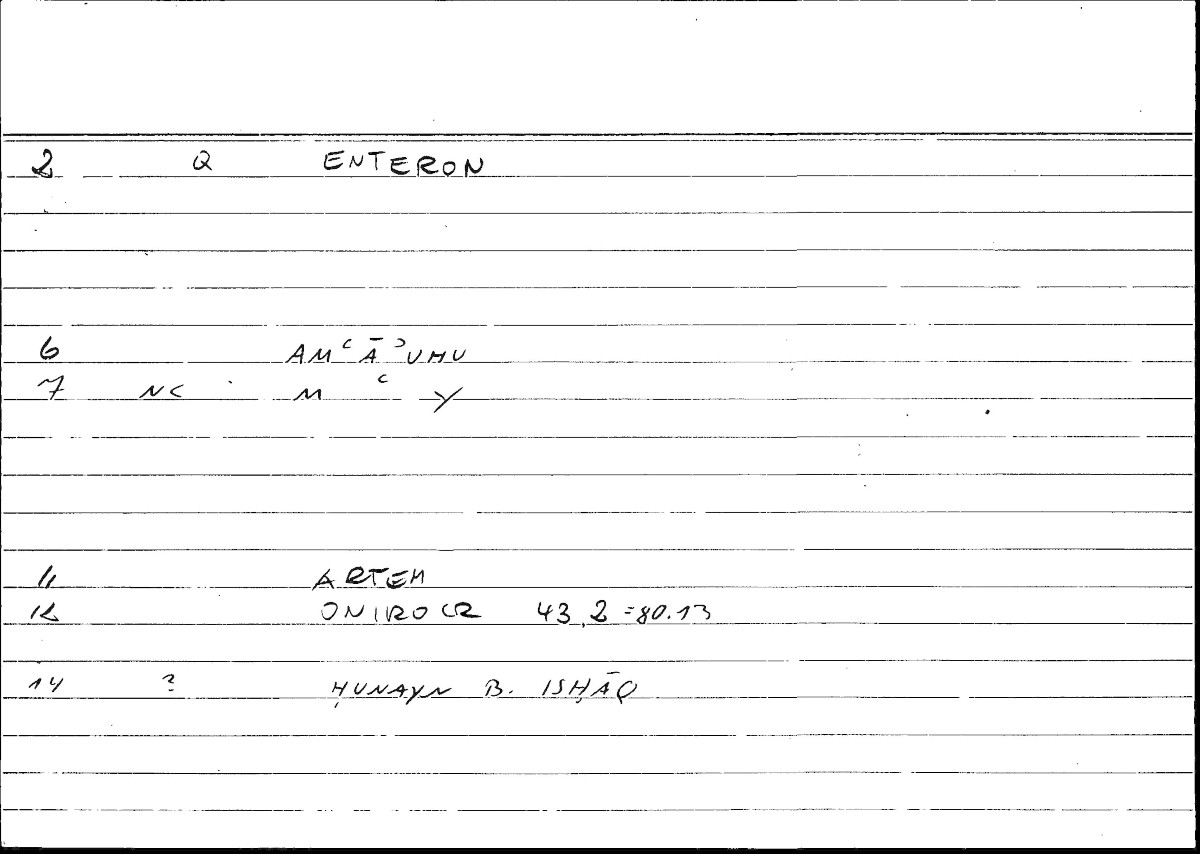 2 Q ENTERON
6 AMʿĀʾUHU
7 NC M ʿ Y
11 ARTEM
12 ONIROCR 43,2=80.13
14 ? ḤUNAYN B. ISḤĀQ